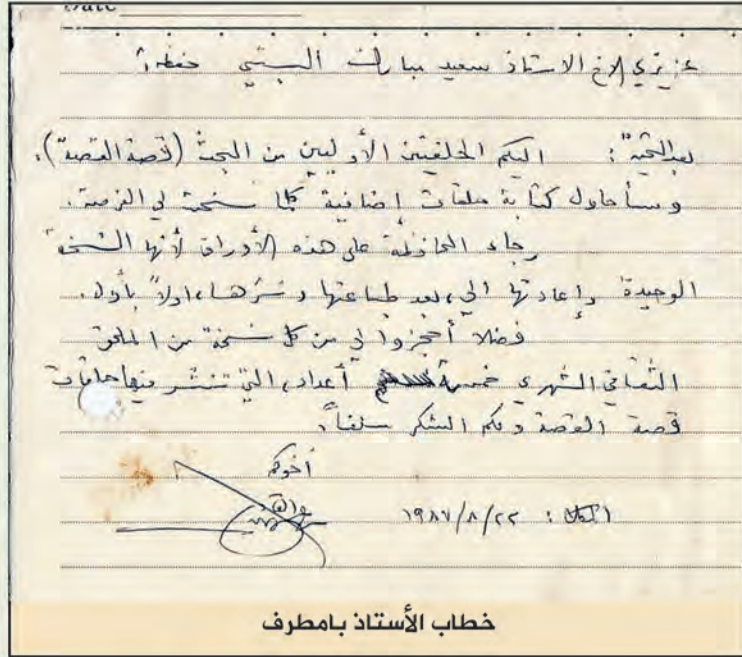 Date
عزيزي الاخ الاستاذ سعيد مبارك البيتي حفظه،
بعد التحية: اليكم الحلقتين الأوليين من البحث (قصة القصة)،
وسأحاول كتابة حلقات إضافية كلما سنحت لي الفرصة.
رجاء المحافظة على هذه الأوراق لأنها النسخة
الوحيدة وإعادتها الي، بعد طباعتها ونشرها، اولاً بأول.
فضلا أحجزوا لي من كل نسخة من الملحق
الثقافي الشهري خمسة أعداد، التي تنشر فيها حلقات
قصة القصة ولكم الشكر سلفاً،
أخوكم
١٩٨٧/٨/٢٢
خطاب الأستاذ بامطرف